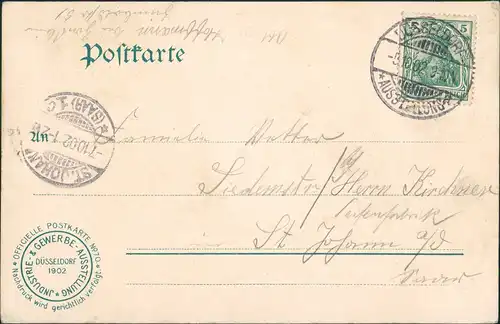 Postkarte
5
DÜSSELDORF
AUSSTELLUNG
ST. JOHANN
7.10.02
(SAAR) 1
An Familie Vetter
Herrn Kirchner
Seifenfabrik
St Johann a/d
Saar
OFFICIELLE POSTKARTE No 70.
JNDUSTRIE- & GEWERBE-AUSSTELLUNG
DÜSSELDORF
1902
Nachdruck wird gerichtlich verfolgt.